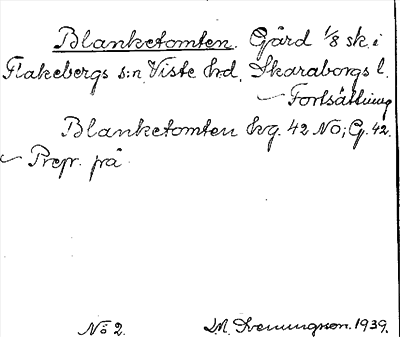 Blanketomten. Gård 1/8 sk. i
Flakebergs s:n, Viste hrd, Skaraborgs l.
Fortsättning
Blanketomten Kvg. 42 NO; G. 42.
Prep. på
Nö 2. M. Sveningson. 1939.